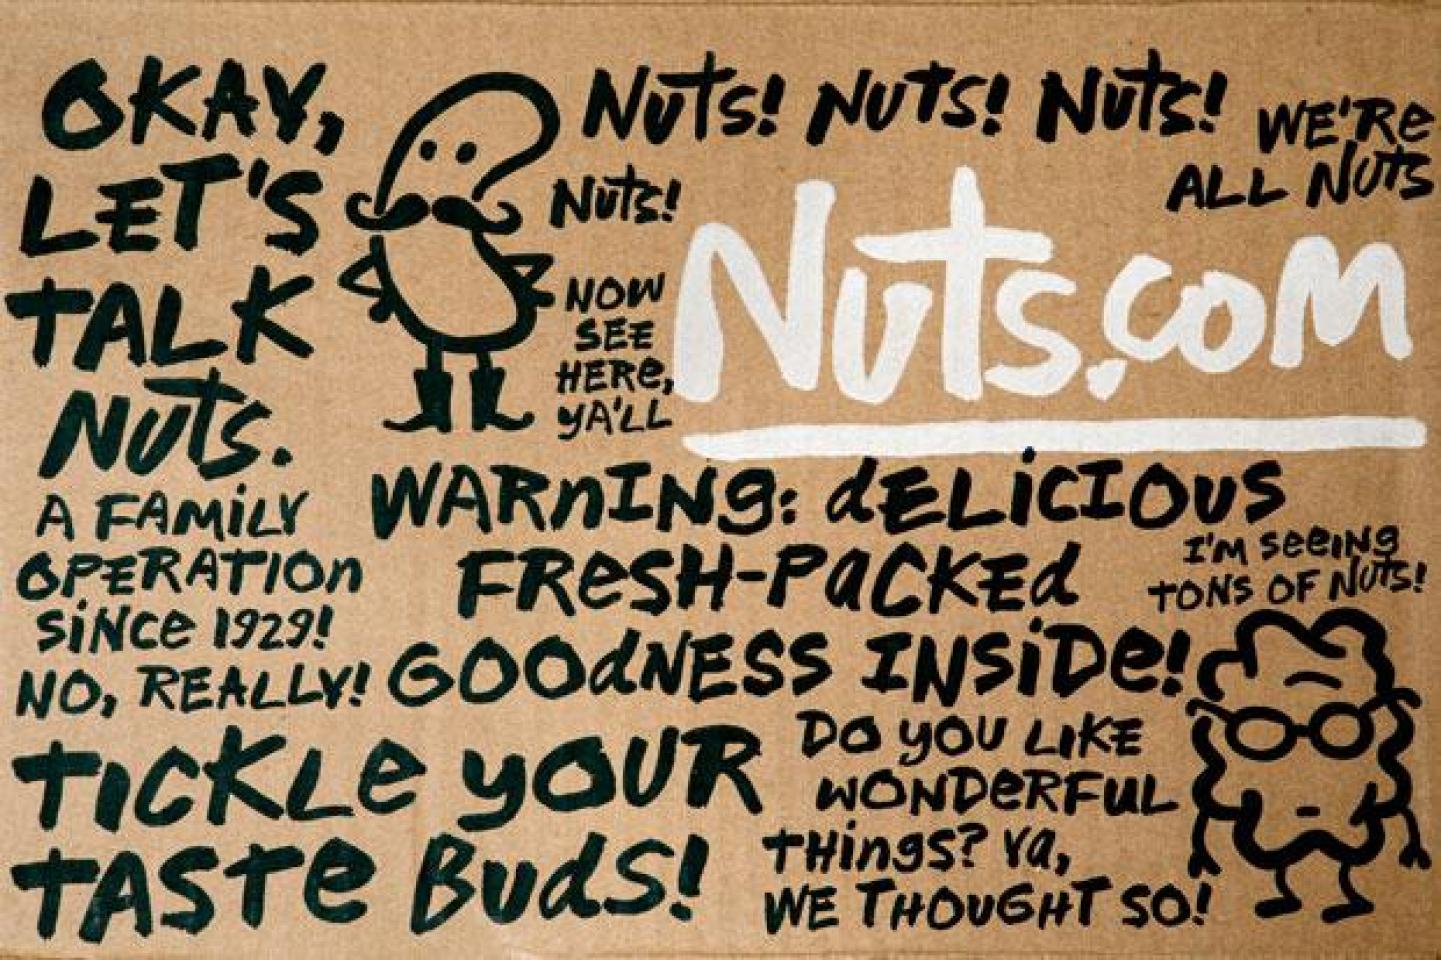 OKAY,
LET'S
TALK
NUTS.
A FAMILY
OPERATION
SINCE 1929!
NO, REALLY!
NUTS! NUTS! NUTS!
NUTS!
WE'RE
ALL NUTS
NOW
SEE
HERE,
YA'LL
Nuts.com
WARNING: dELICIOUS
FRESH-PACKED
GOODNESS INSIDE!
I'M SEEING
TONS OF NUTS!
TICKLE YOUR
TASTE BUDS!
DO YOU LIKE
WONDERFUL
THINGS? YA,
WE THOUGHT SO!